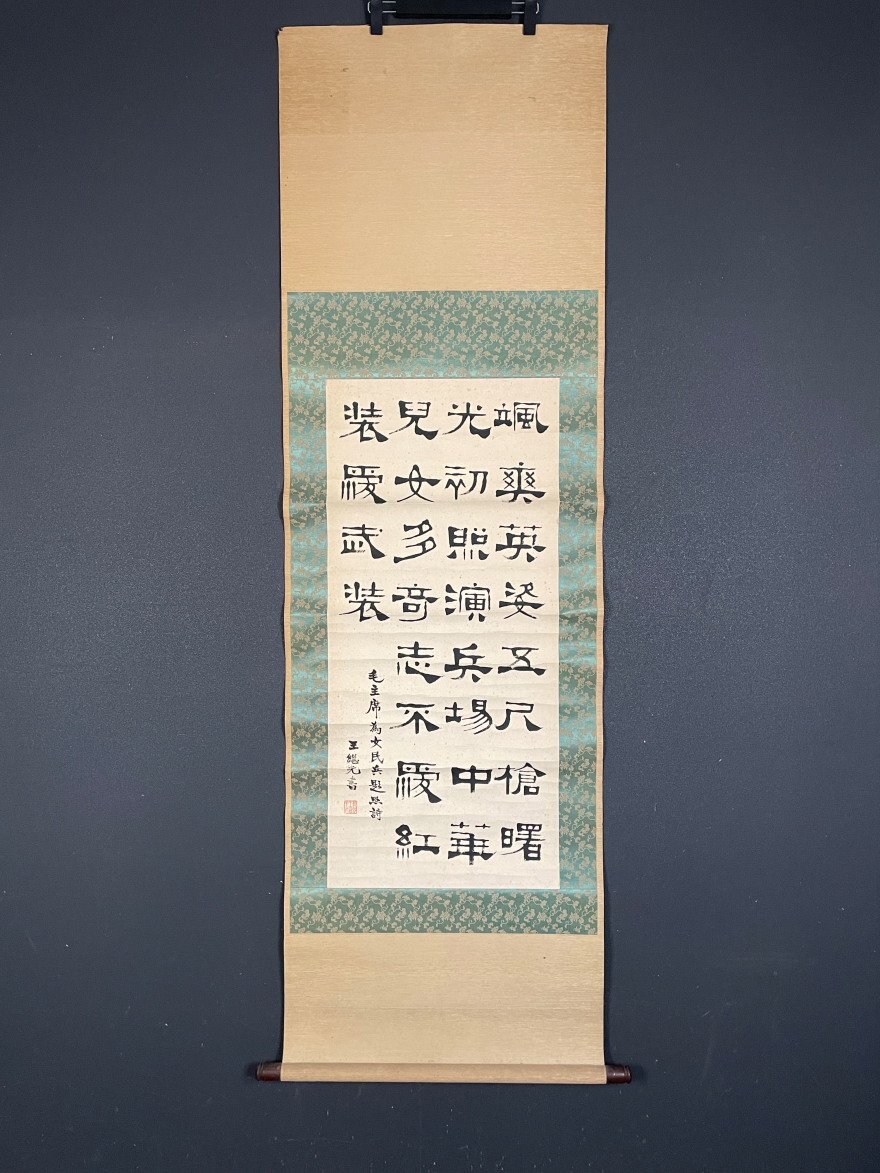 颯爽英姿五尺槍曙
光初照演兵場中華
兒女多奇志不愛紅
装愛武装
毛主席為女民兵題照詩
王繼光書